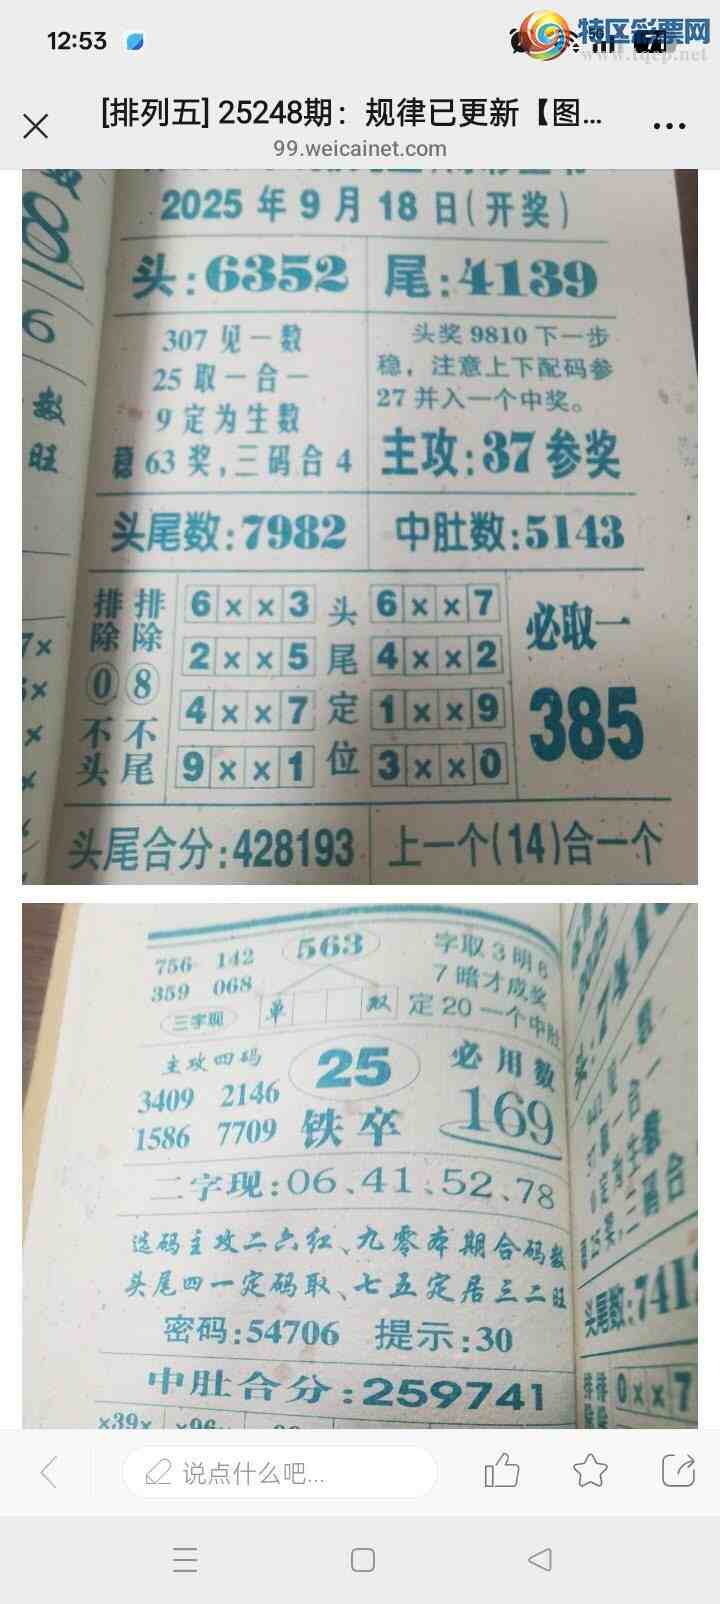 12:53
特区彩票网
www.tqcp.net
[排列五] 25248期：规律已更新【图...
99.weicainet.com
2025年9月18日(开奖)
头:6352 尾:4139
307见一数
25取一合一
9定为生数
稳63奖,三码合4
头奖9810下一步
稳，注意上下配码参
27并入一个中奖。
主攻:37参奖
头尾数:7982 中肚数:5143
排除⓪不头
排除⑧不尾
6××3 头 6××7
2××5 尾 4××2
4××7 定 1××9
9××1 位 3××0
必取一
385
头尾合分:428193 上一个(14)合一个
6
数
旺
756 142
359 068
三字现
563
单 双
字取3明6
7暗才成奖
定20一个中肚
主攻四码
3409 2146
1586 7709
25
铁卒
必用数
169
二字现:06、41、52、78
选码主攻二六红、九零本期合码数
头尾四一定码取、七五定居三二旺
密码:54706 提示:30
中肚合分:259741
×39× ×96×
头尾数:741
0××7
说点什么吧...